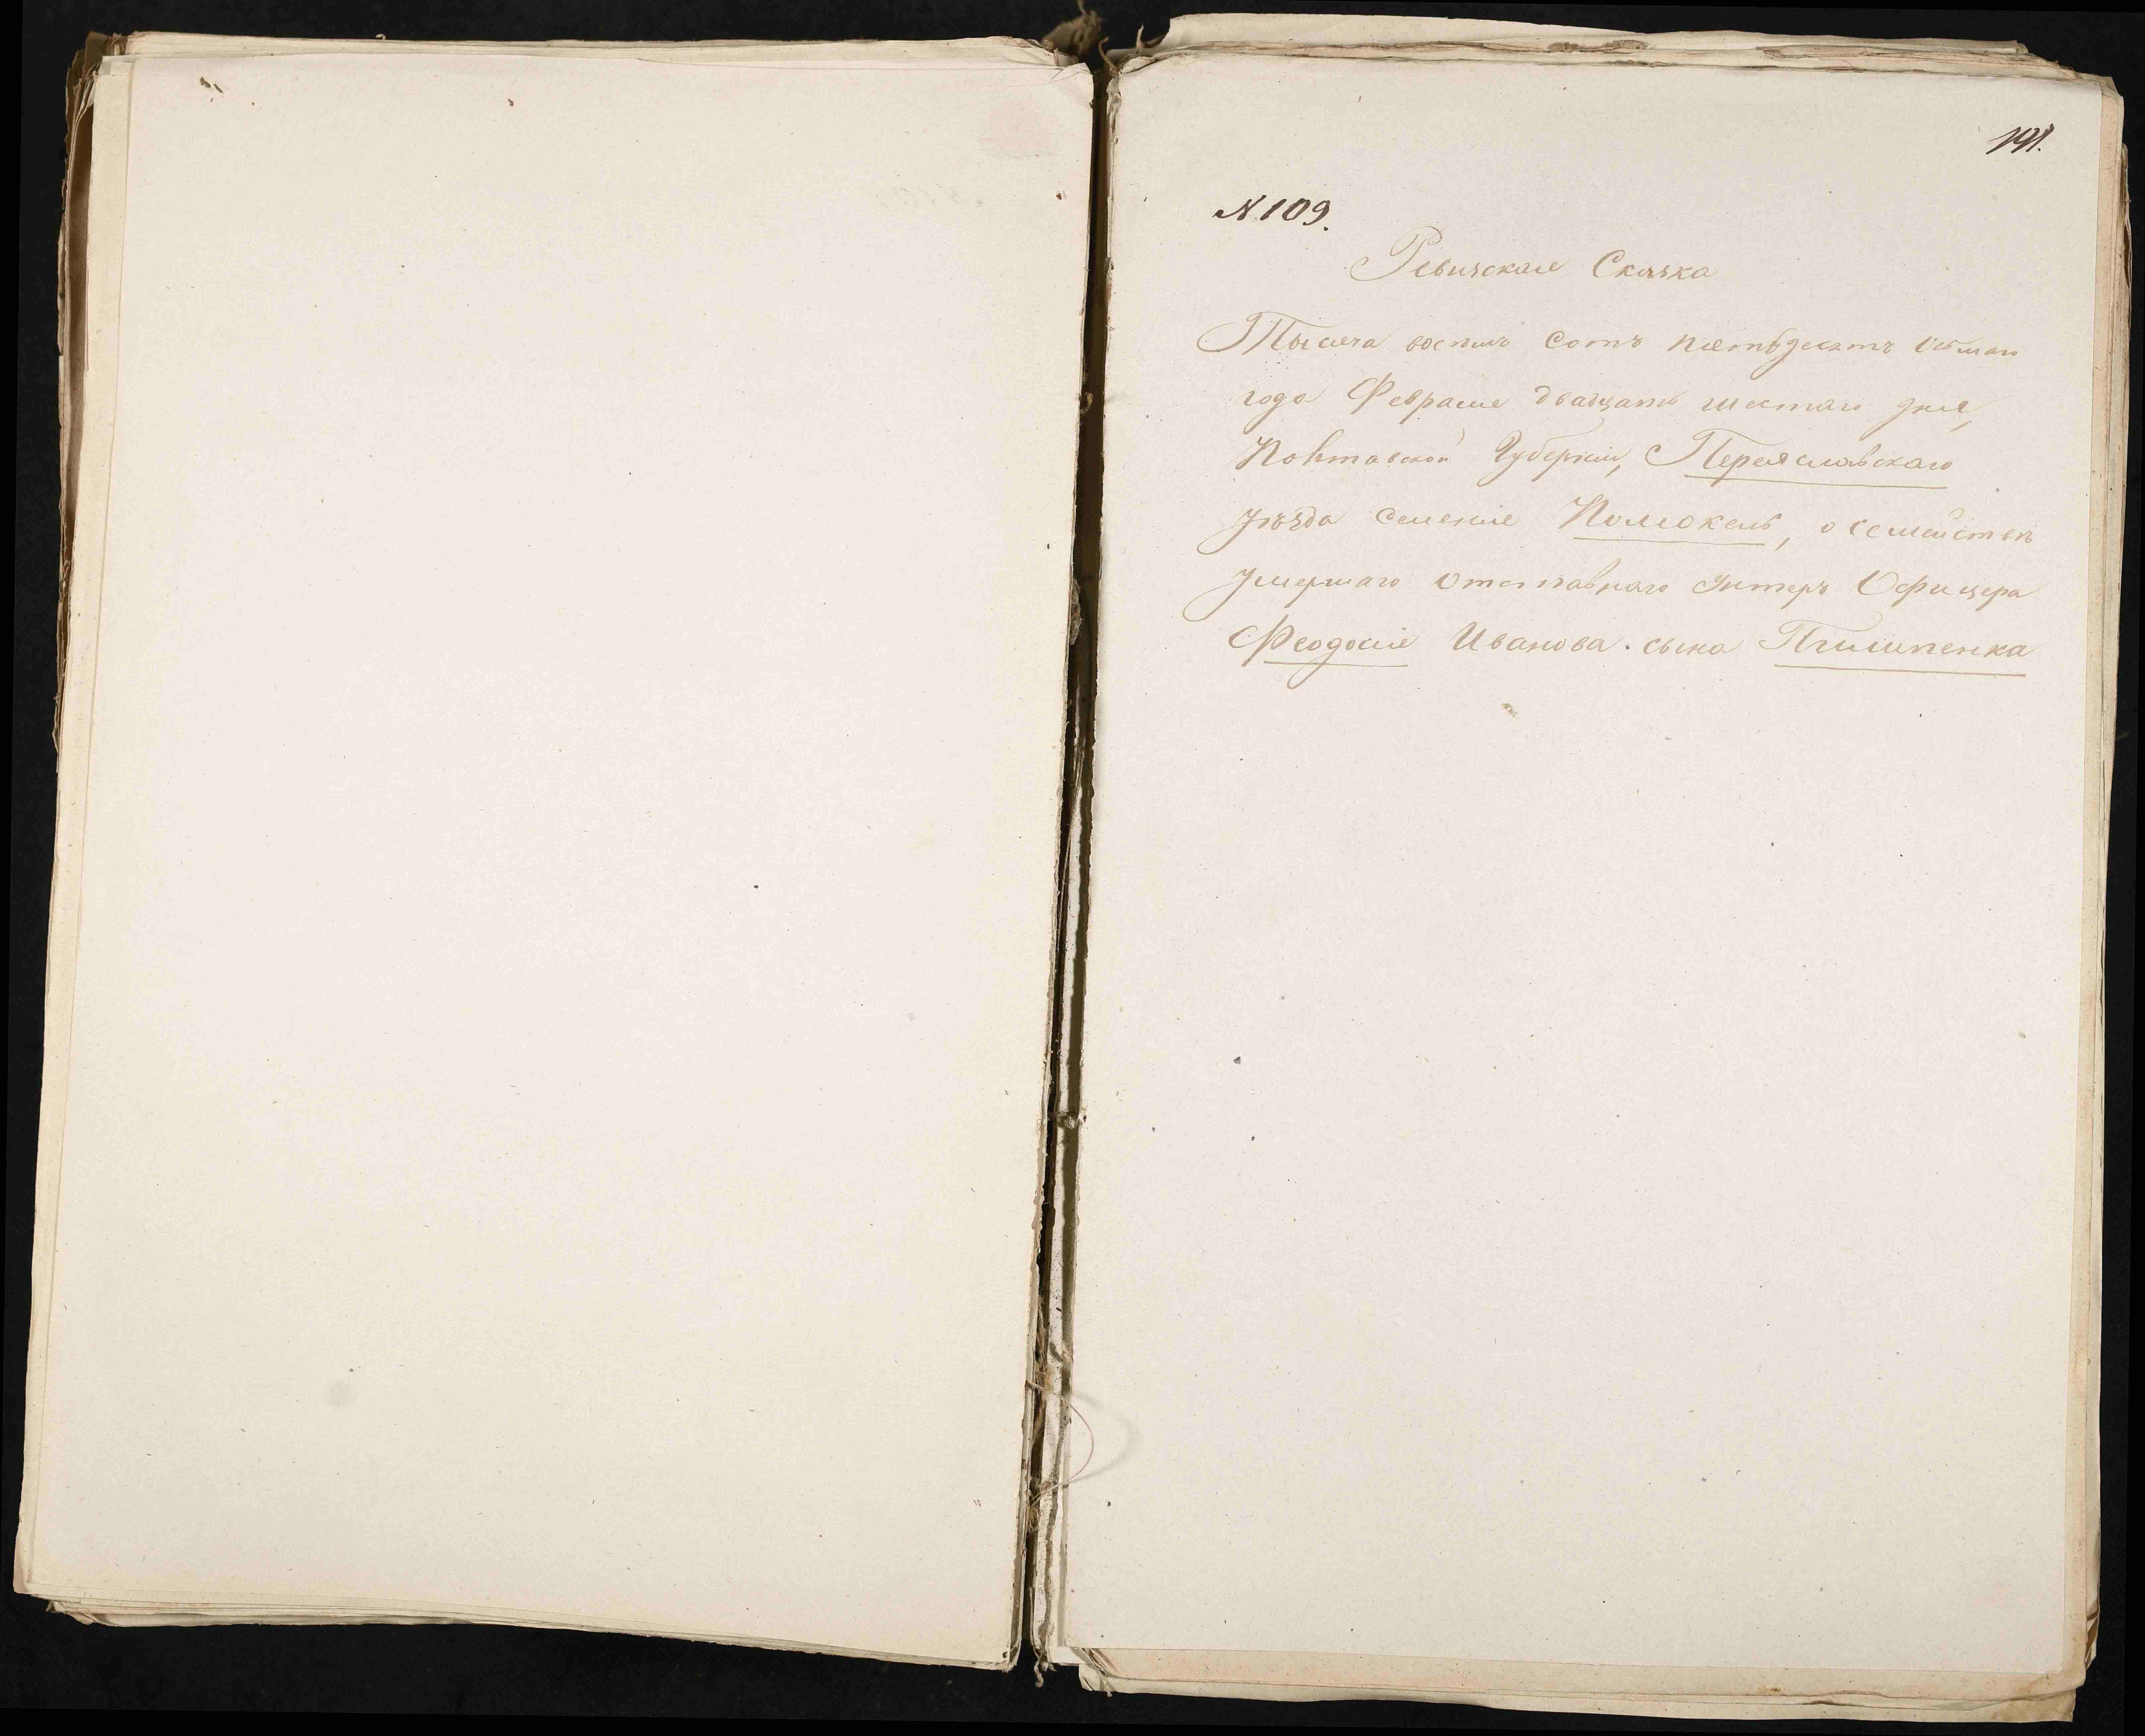 191.
N 109.
Ревизская Сказка
Тысяча восемь сотъ пятьдесятъ осьмаго
года Февраля двадцать шестаго дня,
Полтавской Губерніи, Переяславскаго
уѣзда селенія Помокель, о семействѣ
умершаго отставнаго Унтеръ Офицера
Феодосія Иванова сына Пилипенка